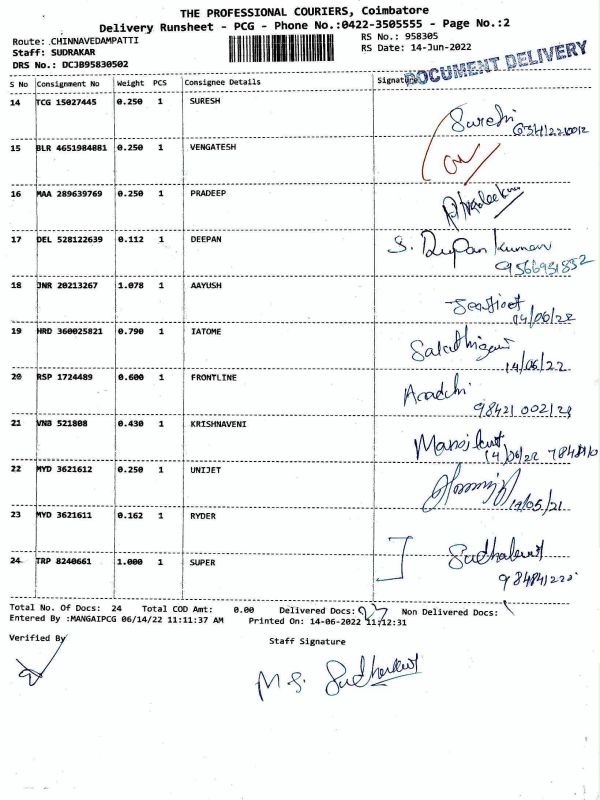 THE PROFESSIONAL COURIERS, Coimbatore
Delivery Runsheet - PCG - Phone No.:0422-3505555 - Page No.:2
Route: CHINNAVEDAMPATTI RS No.: 958305
Staff: SUDRAKAR RS Date: 14-Jun-2022
DRS No.: DCJB95830502
DOCUMENT DELIVERY
S No Consignment No Weight PCS Consignee Details Signature
14 TCG 15027445 0.250 1 SURESH Suresh
15 BLR 4651984881 0.250 1 VENGATESH
16 MAA 289639769 0.250 1 PRADEEP
17 DEL 528122639 0.112 1 DEEPAN S. Deepan kumar
9566931852
18 JNR 20213267 1.078 1 AAYUSH
14/06/22
19 HRD 360025821 0.790 1 IATOME
14/06/22
20 RSP 1724489 0.600 1 FRONTLINE
21 VNB 521808 0.430 1 KRISHNAVENI
14/06/22
22 MYD 3621612 0.250 1 UNIJET
23 MYD 3621611 0.162 1 RYDER
24 TRP 8240661 1.000 1 SUPER
Total No. Of Docs: 24 Total COD Amt: 0.00 Delivered Docs: 23 Non Delivered Docs: 1
Entered By :MANGAIPCG 06/14/22 11:11:37 AM Printed On: 14-06-2022 11:12:31
Verified By Staff Signature
M.S.